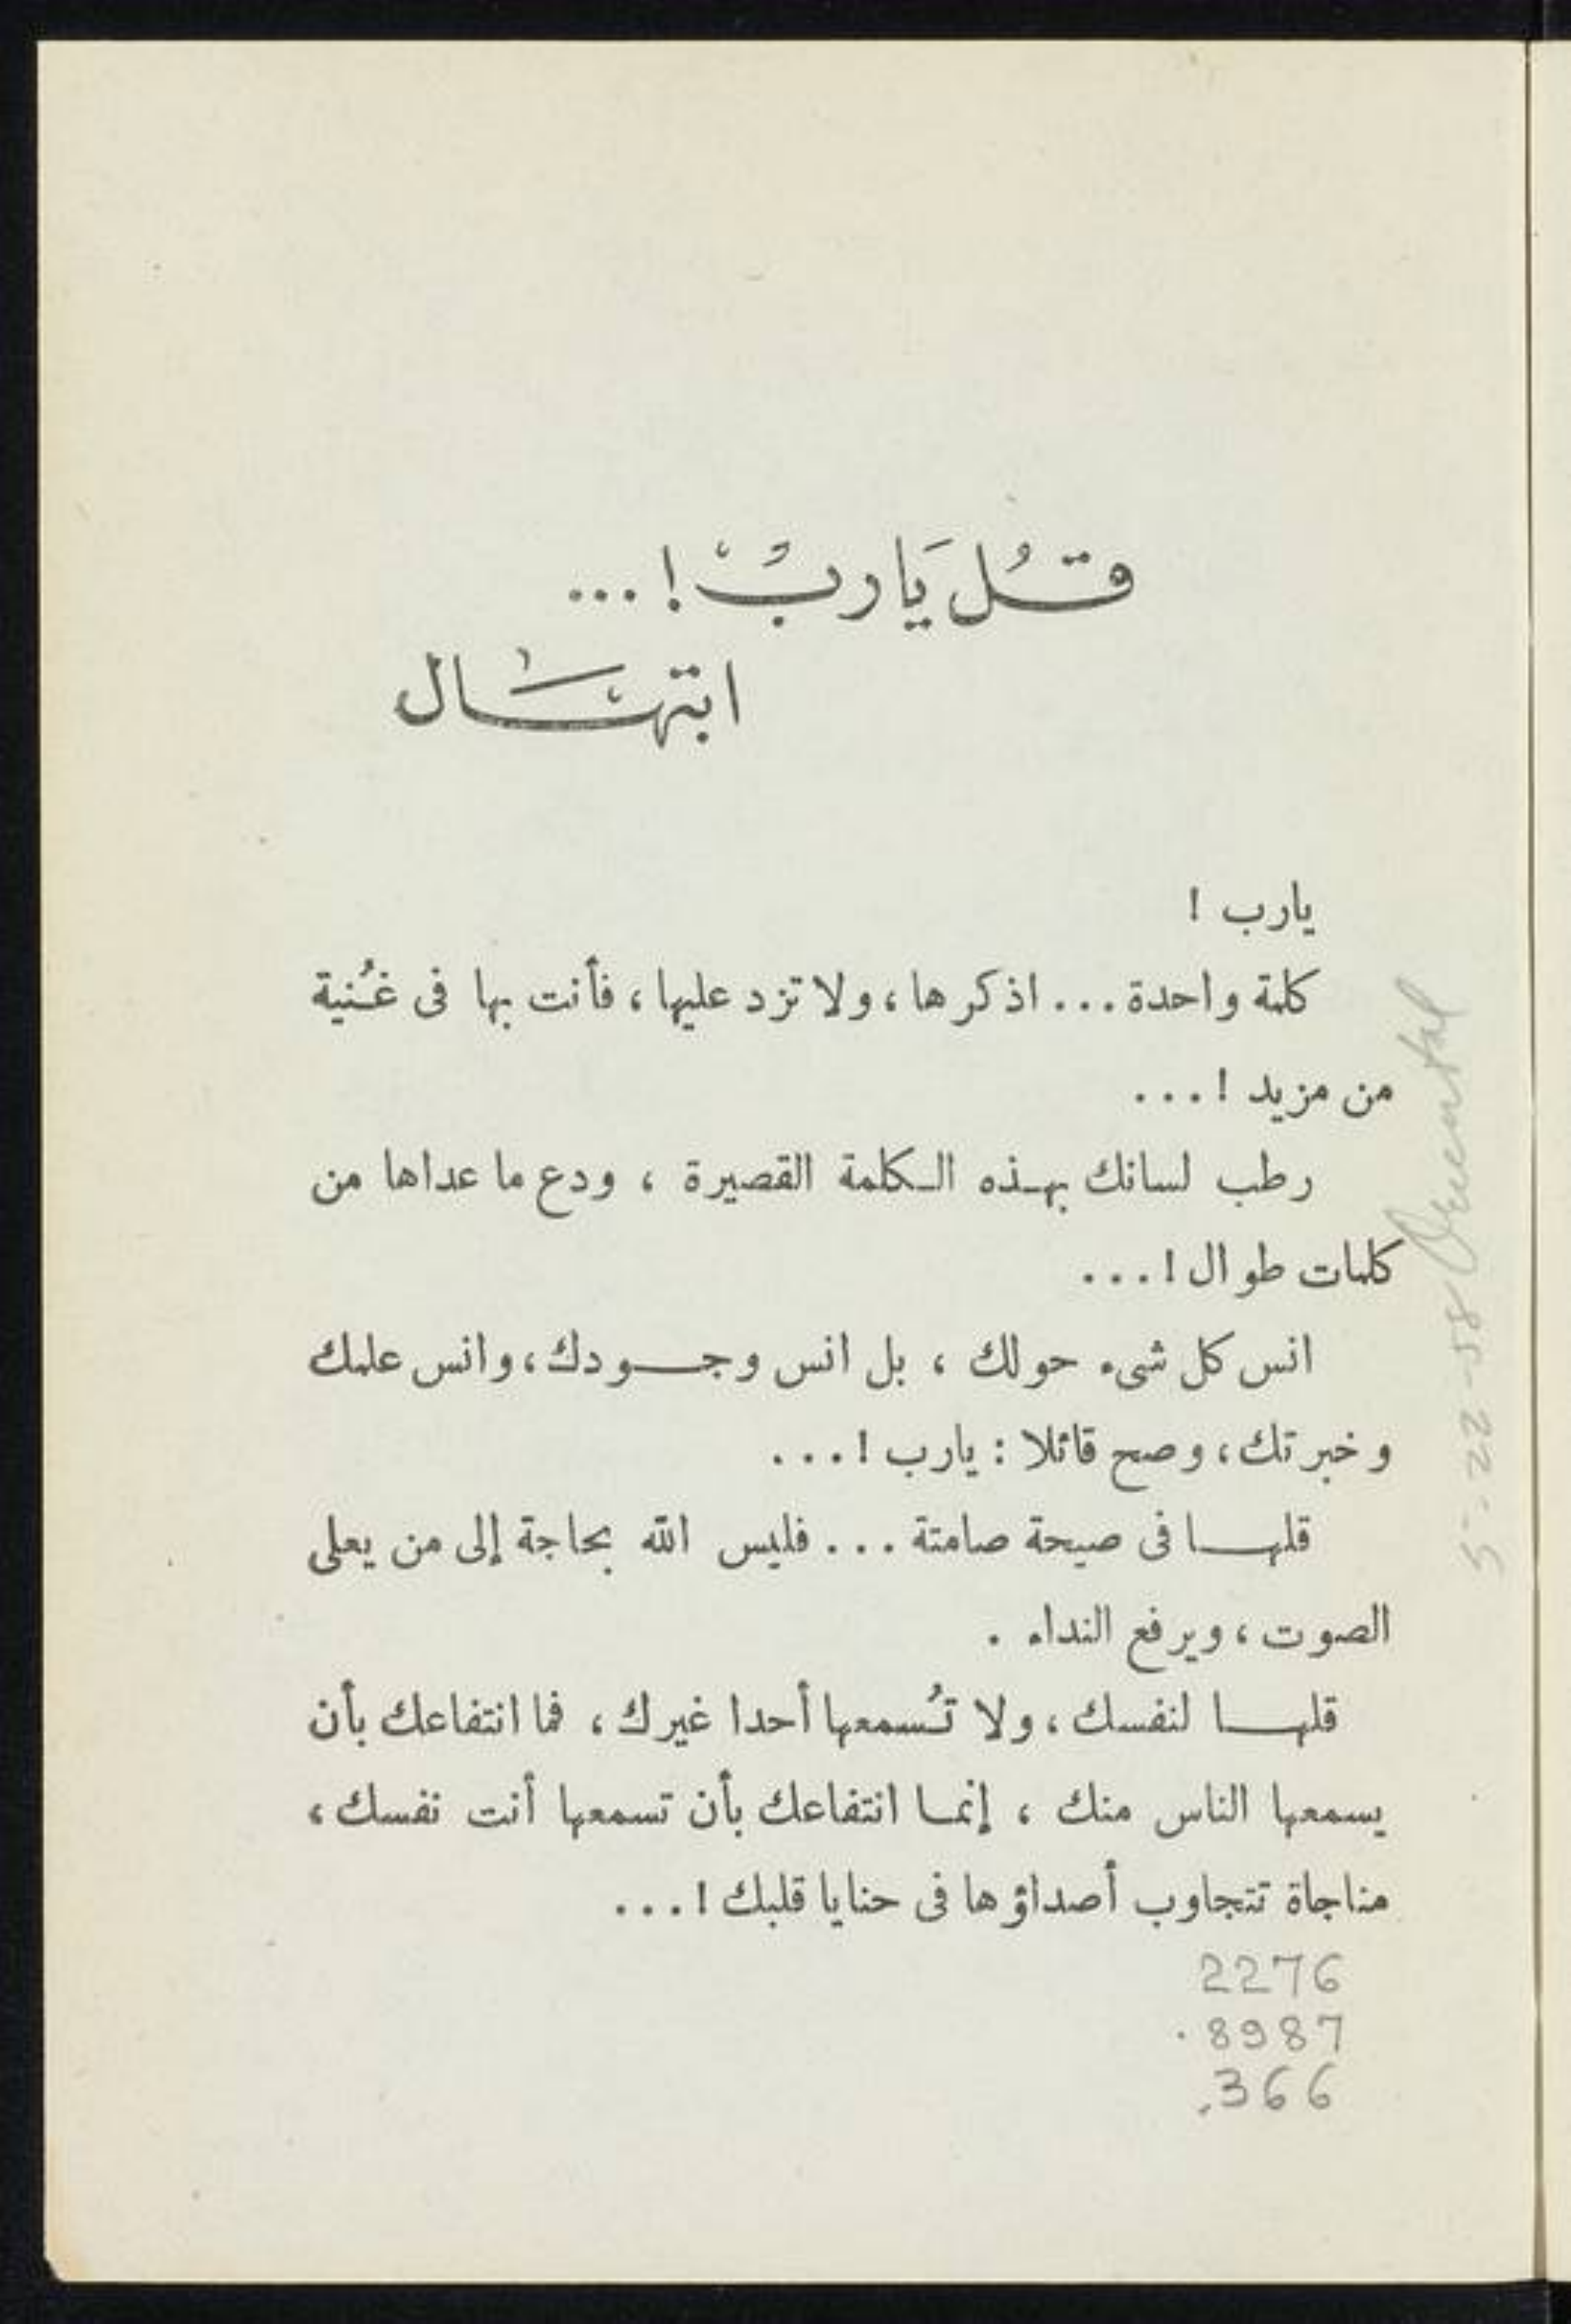 قُل يَا ربُّ ! ...
ابتهَال
يارب !
كلمة واحدة ... اذكرها ، ولا تزد عليها ، فأنت بها فى غُنية
من مزيد ! ...
رطب لسانك بهذه الكلمة القصيرة ، ودع ما عداها من
كلمات طوال ! ...
انس كل شىء حولك ، بل انس وجودك ، وانس علمك
وخبرتك ، وصح قائلا : يارب ! ...
قلها فى صيحة صامتة ... فليس الله بحاجة إلى من يعلى
الصوت ، ويرفع النداء .
قلها لنفسك ، ولا تُسمعها أحدا غيرك ، فما انتفاعك بأن
يسمعها الناس منك ، إنما انتفاعك بأن تسمعها أنت نفسك ،
مناجاة تتجاوب أصداؤها فى حنايا قلبك ! ...
2276
.8987
.366
5-22-58 Oriental